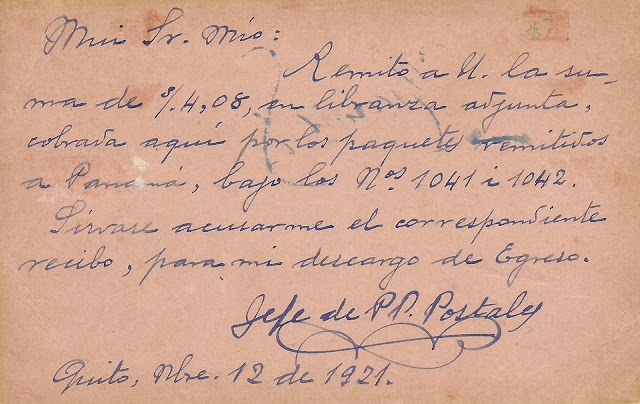 Mui Sr. Mío:
Remito a U. la su-
ma de S/. 4,08, en libranza adjunta,
cobrada aquí por los paquetes remitidos
a Panamá, bajo los Nos. 1041 i 1042.
Sírvase acusarme el correspondiente
recibo, para mi descargo de Egreso.
Jefe de PP. Postales
Quito, Nbre. 12 de 1921.